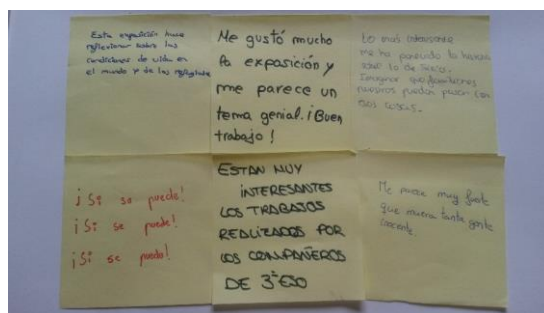 Esta exposición hace
reflexionar sobre las
condiciones de vida en
el mundo y de los refugiados
Me gustó mucho
la exposición y
me parece un
tema genial. ¡Buen
trabajo!
Lo más interesante
me ha parecido
Imaginar que
nuestros puedan pasar
cosas.
¡Si se puede!
¡Si se puede!
¡Si se puede!
ESTAN MUY
INTERESANTES
LOS TRABAJOS
REALIZADOS POR
LOS COMPAÑEROS
DE 3º ESO
Me parece muy fuerte
que muera tanta gente
inocente.